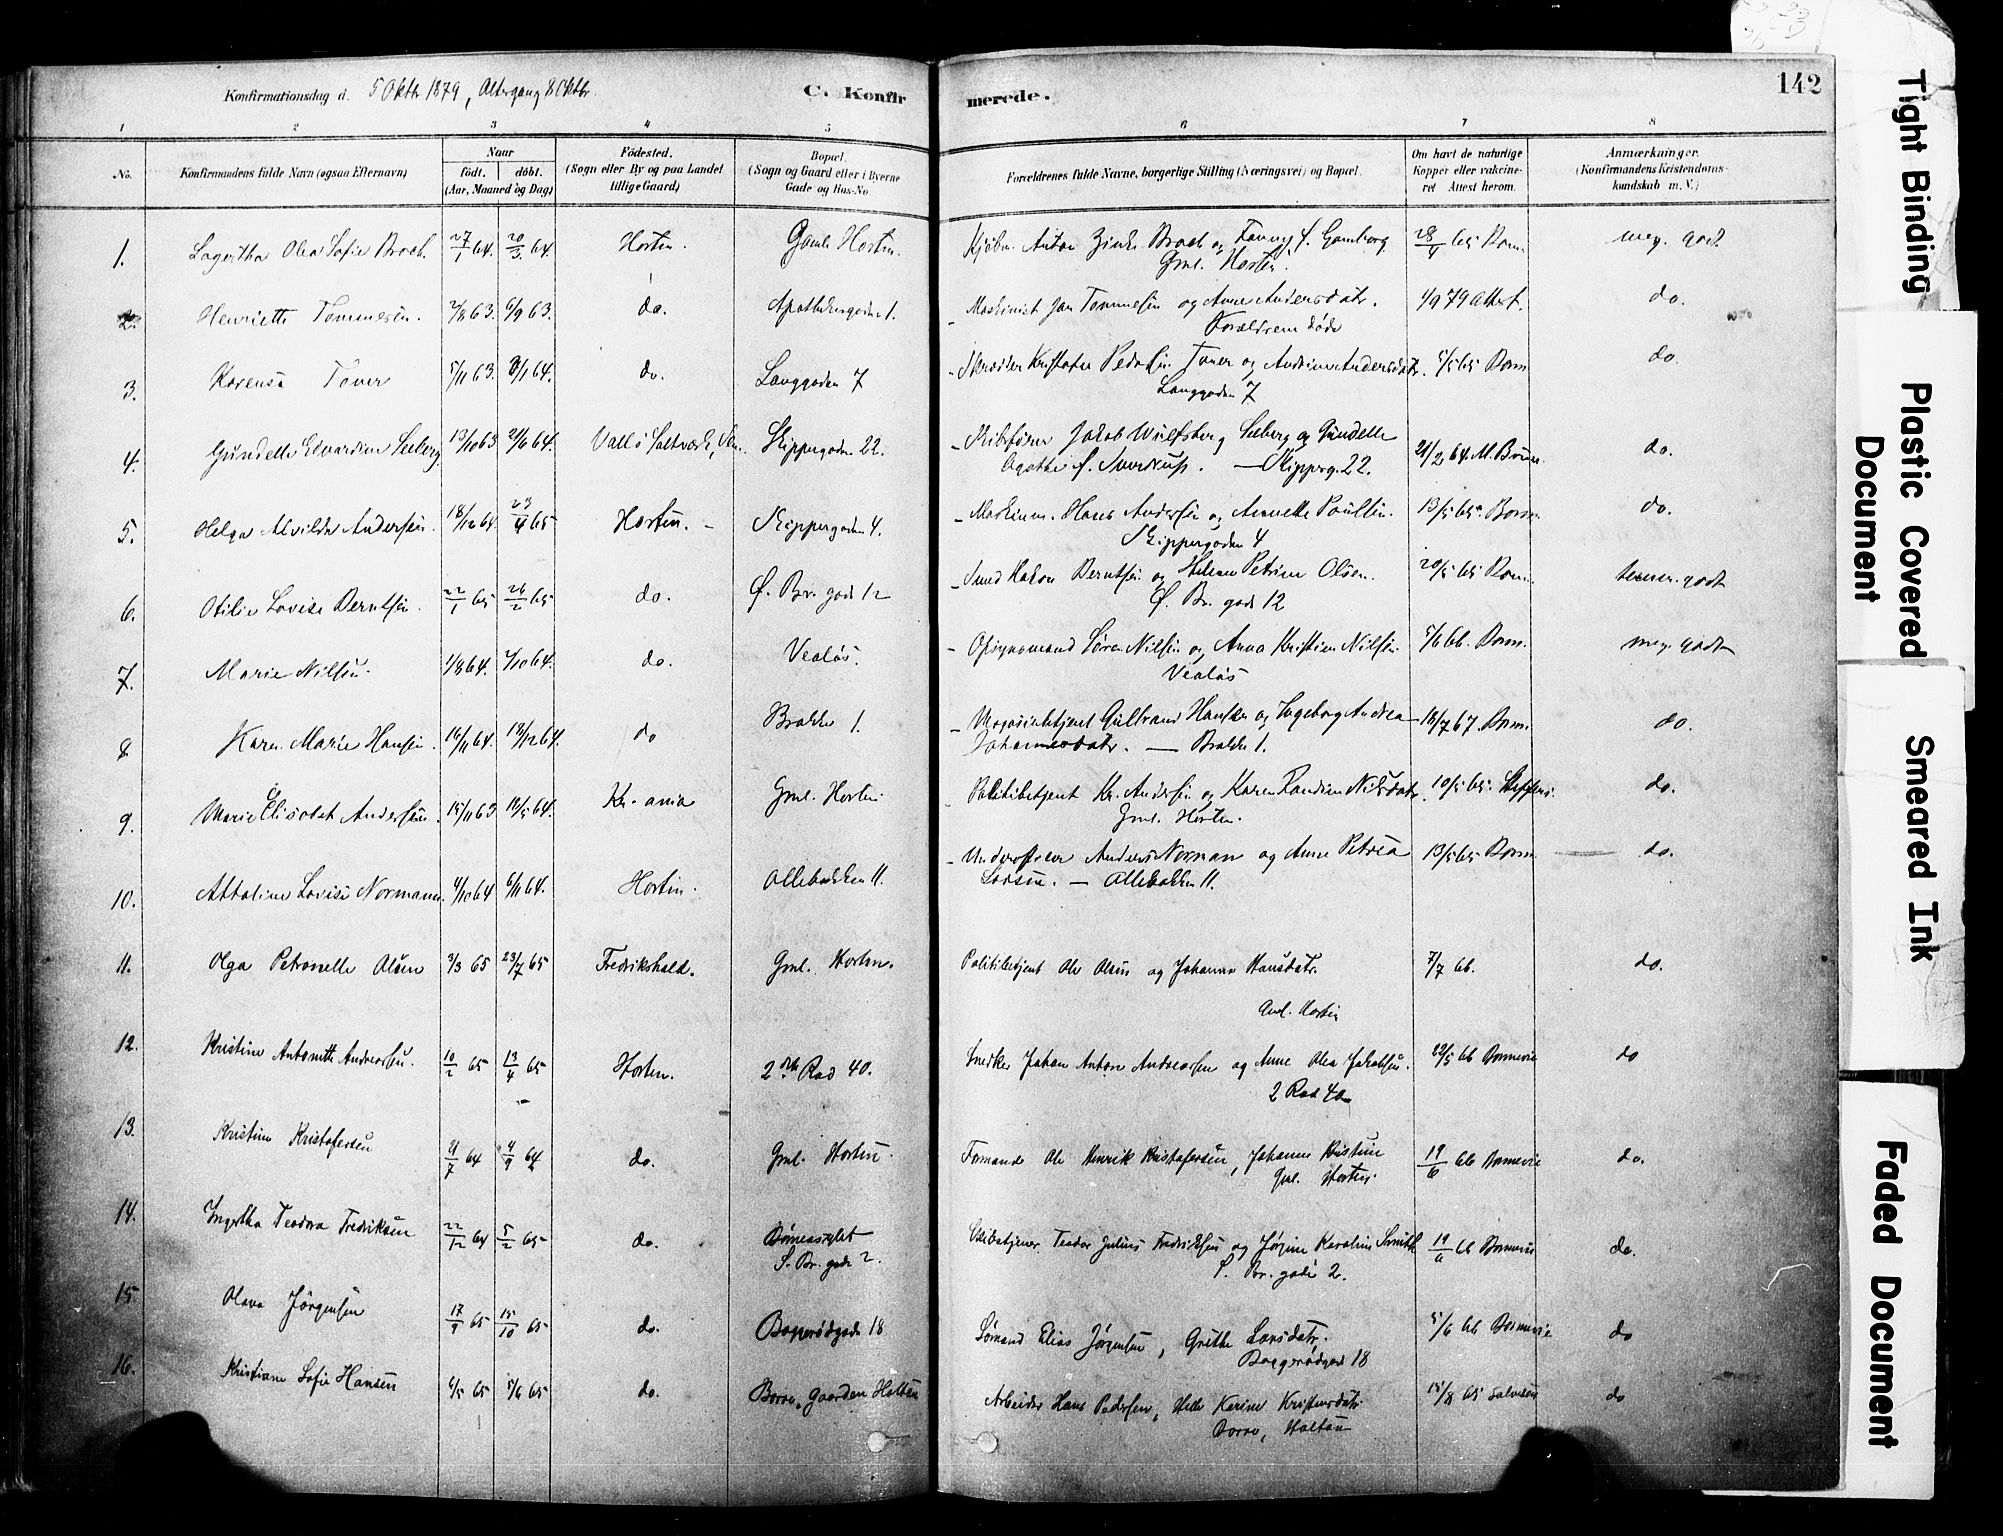 Konfirmationsdag d. 5 Oktbr 1879, Altergang 8 Oktbr.
C. Konfir
merede.
142
1 2 3 4 5 6 7 8
No.
Konfirmandens fulde Navn (ogsaa Efternavn)
Naar
födt. döbt.
(Aar, Maaned og Dag)
Födested.
(Sogn eller By og paa Landet
tillige Gaard)
Bopæl.
(Sogn og Gaard eller i Byerne
Gade og Hus-No.
Forældrenes fulde Navne, borgerlige Stilling (Næringsvei) og Bopæl.
Om havt de naturlige
Kopper eller vakcine-
ret Attest herom.
Anmærkninger.
(Konfirmandens Kristendoms-
kundskab m. V.)
1. Lagertha Olea Sofie Broch. 27/1 64. 20/3 64. Horten. Gamle Horten. Anton Broch og Fanny 28/4 65 meg. godt.
Gml. Horten.
2. Henriette Tommesen. 2/8 63. 6/9 63. do. Apothekergaden 1. Maskinist Jan Tommesen og Anne Andersdatr. 1/9 79 Attest. do.
Forældrene döde
3. Karensa Toner 5/11 63. 3/1 64. do. Langgaden 7 Skrædder Kristofer Toner og Andrine Andersdatr. 5/5 65 do.
Langgaden 7
4. Gundelle Edvardine Seeberg 13/10 63 21/6 64. Vallö Saltværk, Skippergaden 22. Skibsförer Jakob Wulfsberg Seeberg og Gundelle 21/2 64. do.
Agathe f. Sverdrup. — Skipperg. 22.
5. Helga Alvilde Andersen. 18/12 64. 23/4 65 Horten. – Skippergaden 4. Maskinm. Hans Andersen og Annette Paulsen. 13/5 65. do.
Skippergaden 4
6. Otilie Lovise Berntsen. 22/1 65 26/2 65 do. Ø. Br. gade 12 Smed Hakon Berntsen og Helene Petrine Olsen. 20/5 65 temm. godt
Ø. Br. gade 12
7. Marie Nilsen. 1/8 64. 2/10 64. do. Vealös. Opsynsmand Sören Nilsen og Anna Kristine Nilsen 5/6 66. meg. godt
Vealös
8 Karen Marie Hansen. 16/11 64. 18/12 64. do Brakke 1. Magasinbetjent Gulbrand Hansen og Ingeborg Andrea 18/7 67. do.
Johannesdatr. — Brakke 1.
9. Marie Elisabet Andersen. 15/11 63 16/5 64. Kr.ania Gml. Horten. Politibetjent Kr. Andersen og Karen Randine Nilsdatr. 10/5 65. Steffens. do.
Gml. Horten.
10. Attaline Lovise Normann. 4/10 64 6/11 64. Horten. Ollebakken 11. Underofficer Anders Norman og Anne Petrea 13/5 65 do.
Larsen. — Ollebakken 11.
11. Olga Petronelle Olsen 3/3 65 23/7 65 Fredrikshald. Gml. Horten. Politibetjent Ole Olsen og Johanne Hansdatr. 7/7 66. do.
Gml. Horten
12. Kristine Antonette Andreassen. 10/2 65 13/4 65 Horten. 2den Rad 40. Snedker Johan Anton Andreassen og Anne Olea Jakobsen. 22/5 66 Bonnevie do
2 Rad 40
13. Kristine Kristofersen 4/7 64 4/9 64 do. Gml. Horten. Formand Ole Henrik Kristofersen, Johanne Kristine 19/6 66 Bonnevie do.
Gml. Horten.
14. Ingertha Teodora Fredriksen 22/12 64 5/2 65 do. Börneasylet Teodor Julius Fredriksen og Jörgine Karoline Smith 19/6 66 Bonnevie do.
S. Br. gade 2. S. Br. gade 2.
15 Olava Jörgensen 17/9 65 15/10 65 do. Baggerödgade 18 Sömand Elias Jörgensen, Grethe Larsdatr. 5/6 66 Bonnevie do
Baggerödgad 18
16. Kristiane Sofie Hansen 6/5 65 5/6 65 do. Borre, Gaarden Holtan Arbeider Hans Pedersen, Helle Karine Kristensdatr 15/8 65 Salvesen do
Borre, Holtan
Tight Binding
Plastic Covered
Document
Smeared Ink
Faded Document